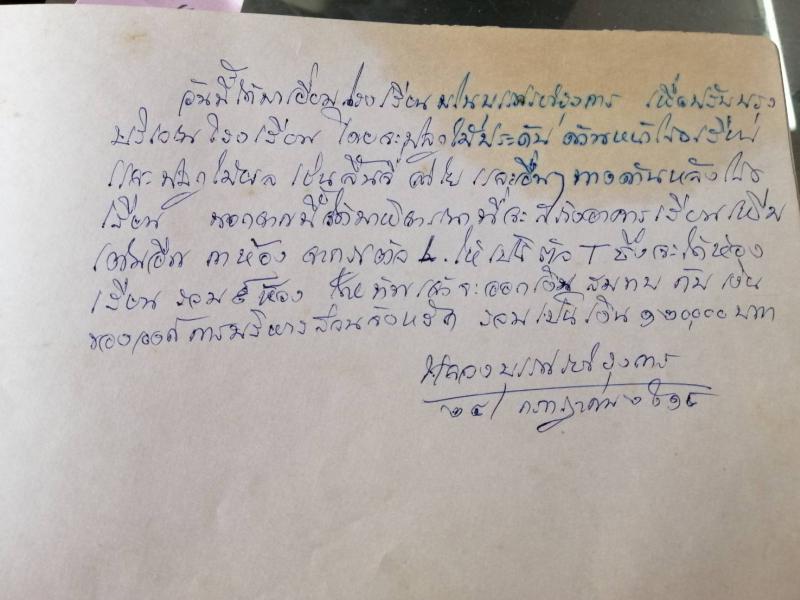 วันนี้ได้มาเยี่ยมโรงเรียน เพื่อปรับปรุง
บริเวณโรงเรียน โดยจะปลูกไม้ประดับ ด้านหน้าโรงเรียน
และปลูกไม้ผล เช่นลิ้นจี่ ลำไย และอื่นๆ ทางด้านหลังโรง
เรียน นอกจากนี้ได้มาพิจารณาที่จะสร้างอาคารเรียนเพิ่ม
เติมอีก ห้อง จาก ตัว L. ให้เป็นตัว T ซึ่งจะได้ห้อง
เรียน รวม ห้อง จะออกเงินสมทบ กับเงิน
ขององค์การบริหารส่วนจังหวัด รวมเป็นเงิน ๑๒๐๐๐๐ บาท
กรกฎาคม